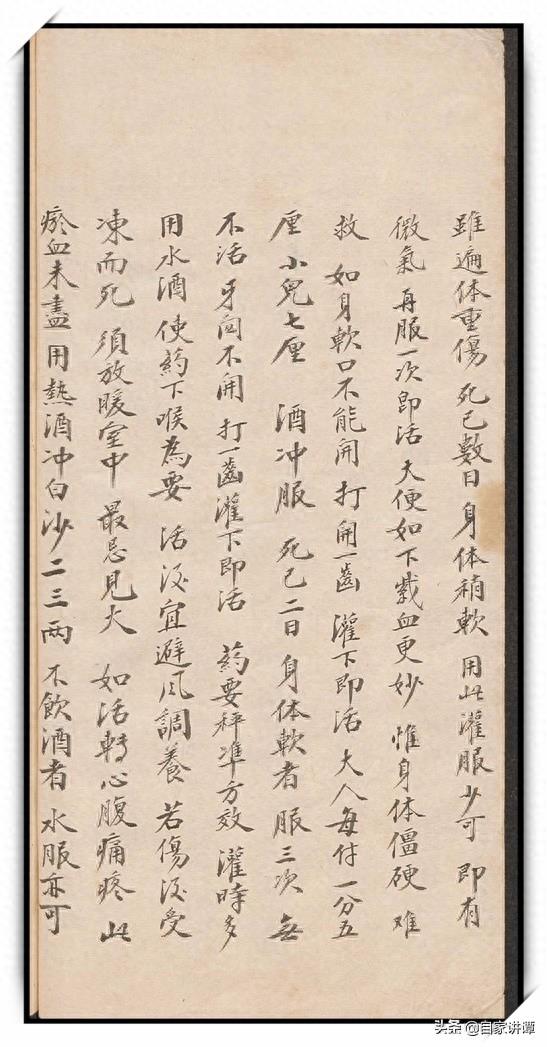 雖遍体重傷 死已數日 身体稍軟 用此灌服少可 即有
微氣 再服一次即活 大便如下紫血更妙 惟身体僵硬 难
救 如身軟口不能開 打開一齒 灌下即活 大人每付一分五
厘 小兒七厘 酒冲服 死已二日 身体軟者 服三次 無
不活 牙関不開 打一齒灌下即活 葯要秤準方效 灌時多
用水酒 使葯下喉為要 活後宜避风調養 若傷後受
凍而死 須放暖室中 最忌見火 如活轉心腹痛疼 此
瘀血未盡 用熱酒冲白沙二三两 不飲酒者 水服亦可
头条 @自家讲谭